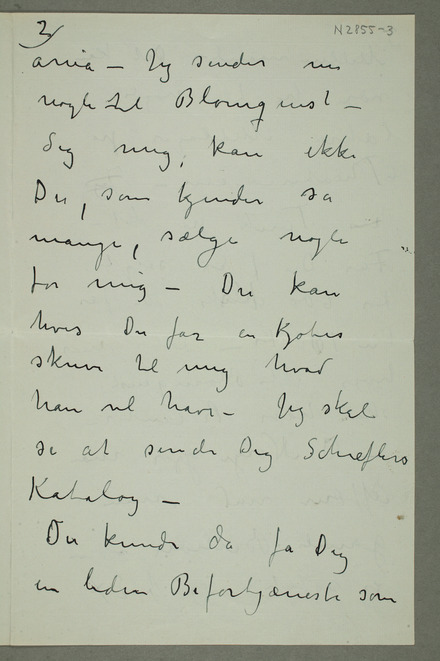 3/
N 2855-3
ania – Jeg sender nu
nogle til Blomquist –
Sig mig, kan ikke
Du, som kjender så
mange, sælge nogle
for mig – Du kan
hvis Du får en Kjøber
skrive til mig hvad
han vil have – Jeg skal
se at sende Dig Schieflers
Katalog –
Du kunde da få Dig
en liden Bifortjæneste som